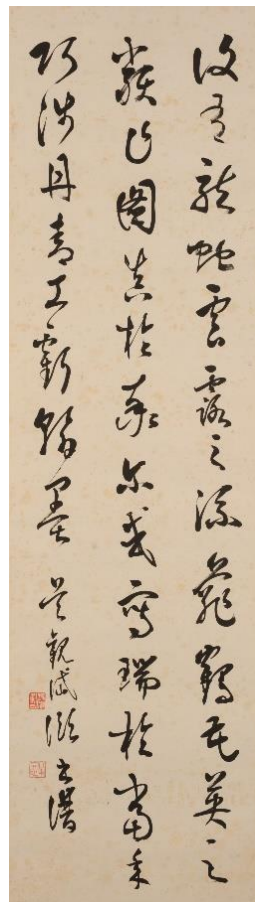 復有龍蛇雲露之流龜鶴花英之
類乍圖真於率爾或寫瑞於當年
巧涉丹青工虧翰墨 吳觀岱臨書譜